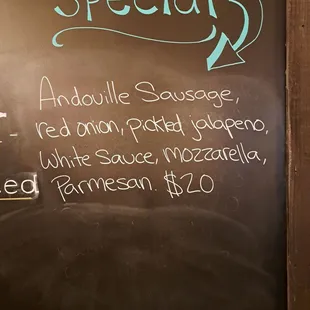 Special
Andouille Sausage,
red onion, pickled jalapeno,
White Sauce, mozzarella,
Parmesan. $20